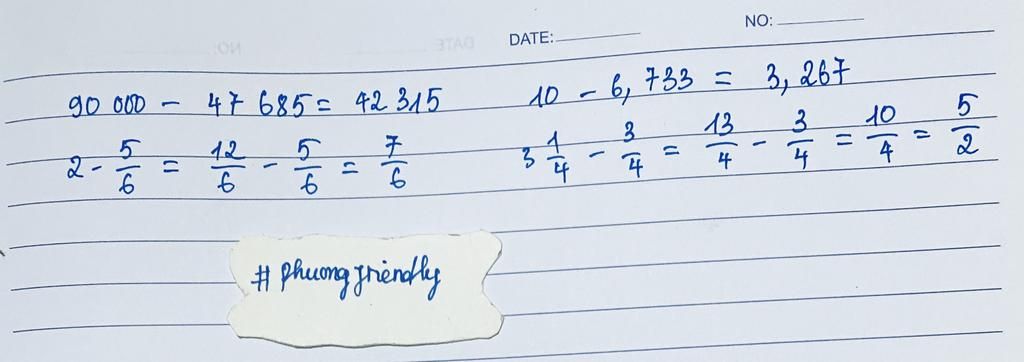 DATE: NO:
90 000 - 47 685 = 42 315
10 - 6, 733 = 3, 267
2 - 5/6 = 12/6 - 5/6 = 7/6
3 1/4 - 3/4 = 13/4 - 3/4 = 10/4 = 5/2
# phuongfriendly